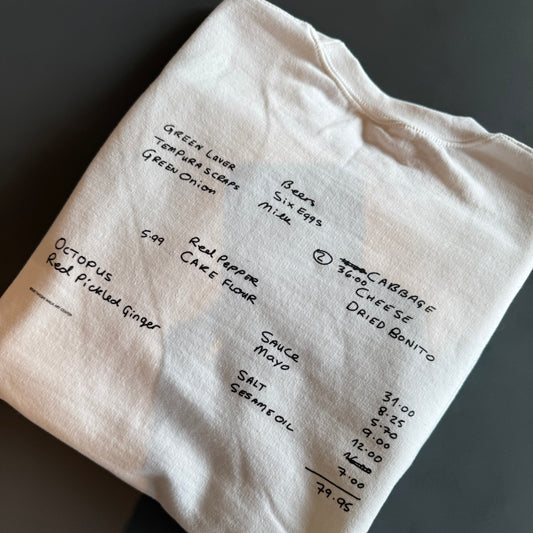 GREEN LAVER
TEMPURA SCRAPS
GREEN Onion
Beers
Six Eggs
Milk
5.99
Red PEPPER
CAKE FLOUR
② CABBAGE
36.00
CHEESE
DRIED BONITO
OCTOPUS
Red Pickled Ginger
SAUCE
MAYO
SALT
SESAME OIL
31.00
8.25
5.70
9.00
12.00
7.00
79.95